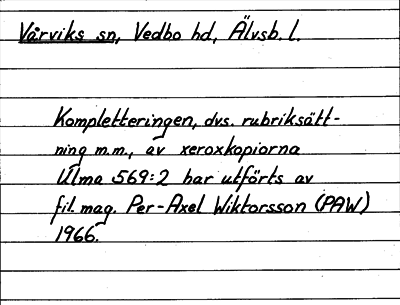 Vårviks sn, Vedbo hd, Älvsb. l.
Kompletteringen, dvs. rubriksätt-
ning m.m., av xeroxkopiorna
Ulma 569:2 har utförts av
fil. mag. Per-Axel Wiktorsson (PAW)
1966.